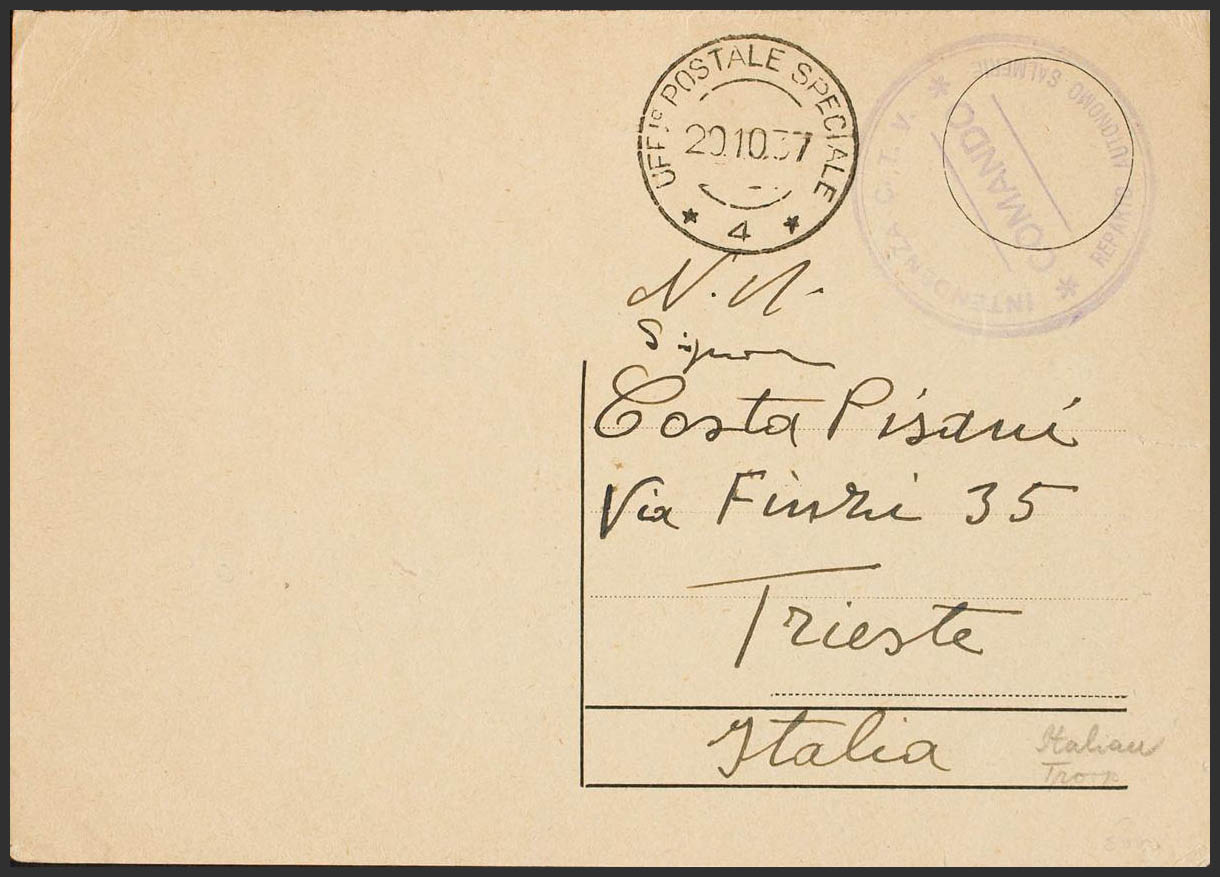 UFFIº POSTALE SPECIALE
20.10.37
* 4 *
INTENDENZA C.T.V.
* COMANDO *
REPARTO AUTONOMO SALMERIE
N. N.
Signor
Costa Pisani
Via Finzi 35
Trieste
Italia
Italian
Troop